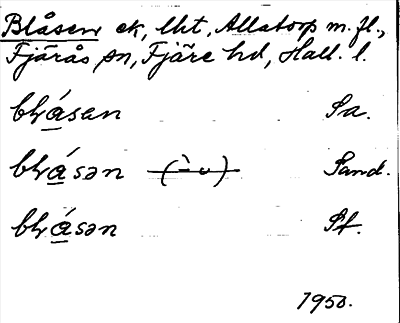 Blåsen ek, lht, Allatorp m. fl.,
Fjärås sn, Fjäre hd, Hall. l.
blɑ́san Sa.
blɑ́sən (-̀ ᴗ) Sand.
blɑ́sən St.
1950.